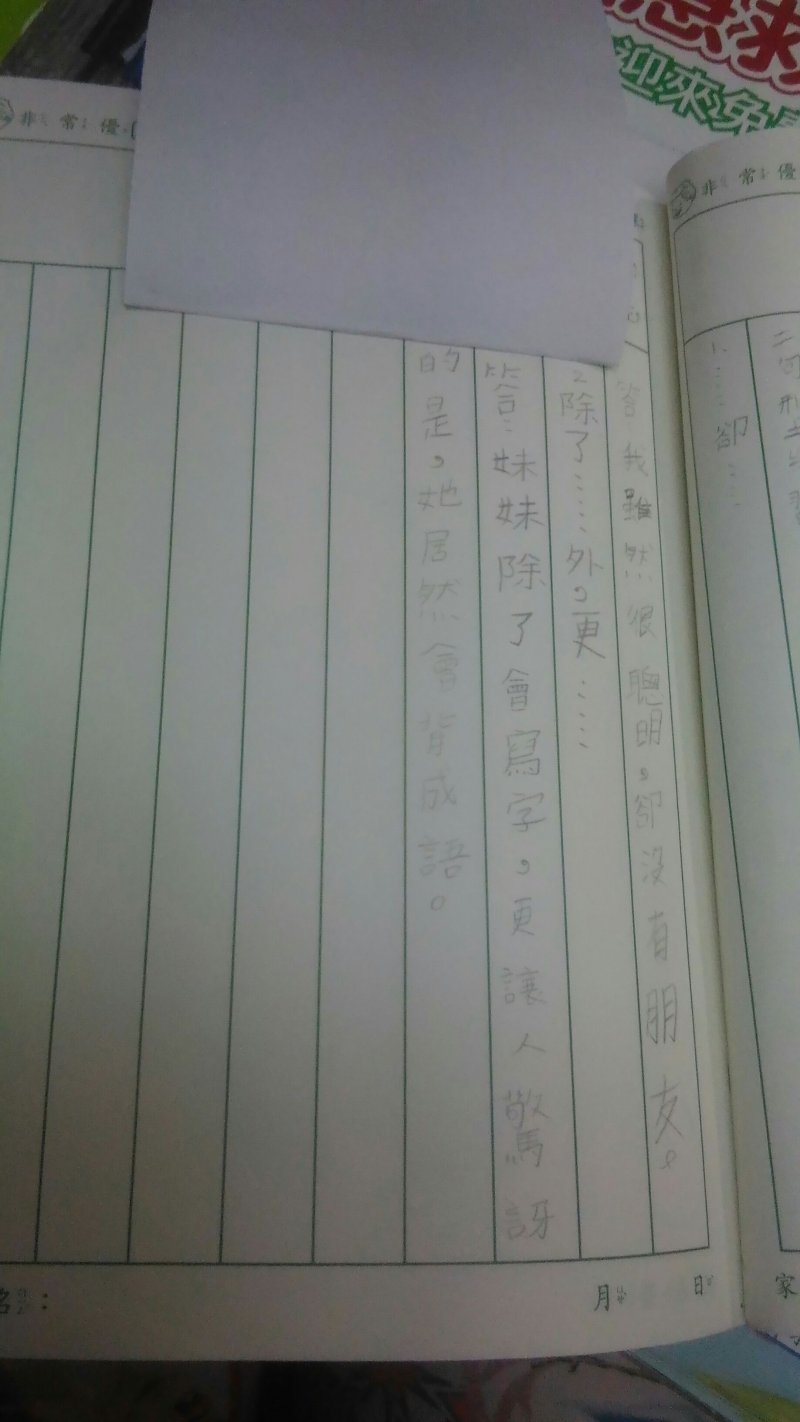 迎來免
非常優
非常優
二句型
1.……卻……
答:我雖然很聰明,卻沒有朋友。
2除了……外,更……
答:妹妹除了會寫字,更讓人驚訝
的是,她居然會背成語。
月 日
家